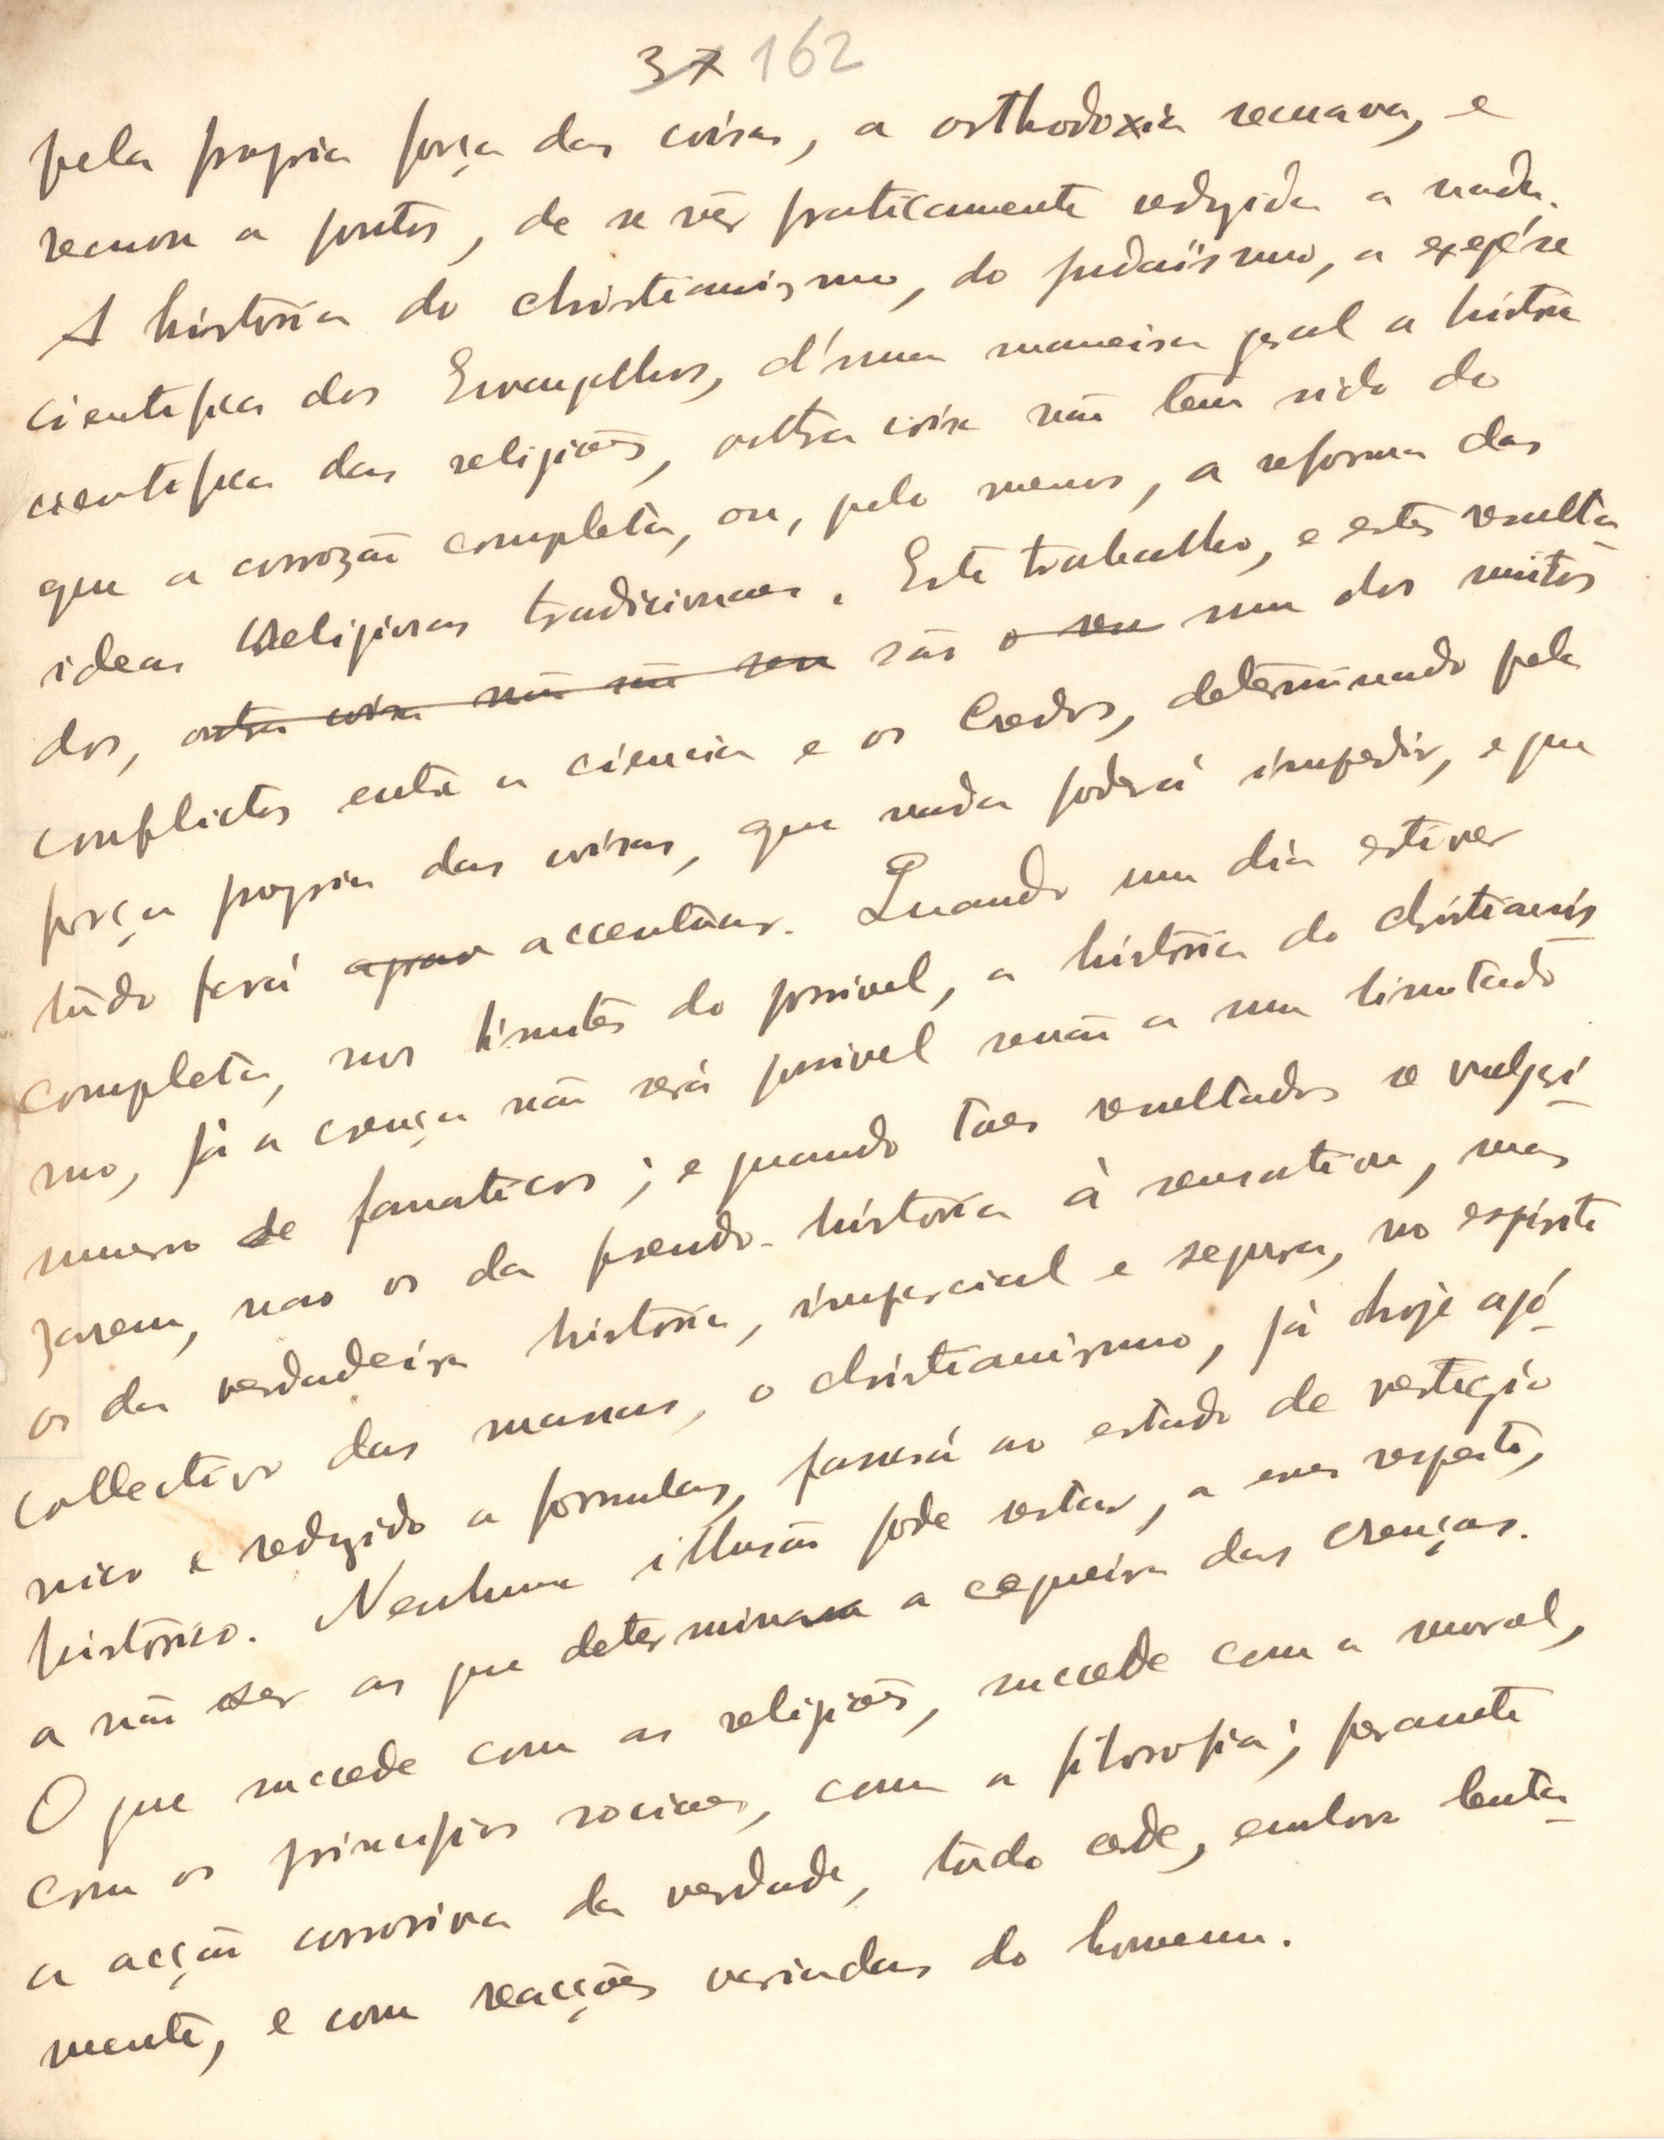 37 162
pela propria força das coisas, a orthodoxia recuava, e
recuou a pontos, de se vêr praticamente reduzida a nada.
A história do christianismo, do judaïsmo, a exegése
cientifica dos Evangelhos, d'uma maneira geral a histria
cientifica das religiões, outra coisa não tem sido do
que a corrozão completa, ou, pelo menos, a reforma das
ideas religiosas tradicionaes. Este trabalho, e estes resulta-
dos, outra coisa não são sen são o seu um dos muitos
conflictos entre a ciencia e os Credos, determinado pela
força propria das coisas, que nada poderá impedir, e que
tudo fará agravar accentuar. Quando um dia estiver
completa, nos limites do possivel, a história do christianis
mo, já a crença não será possivel senão a um limitado
numero de fanaticos; e quando taes resultados se vulgri-
zarem, nao os da pseudo-história à sensation, mas
os da verdadeira história, imparcial e segura, no espirito
collectivo das massas, o christianismo, já hoje agó-
nico e reduzido a formulas, passará ao estado de vestigio
histórico. Nenhuma illusão pode restar, a esse respeito,
a não ser as que determina a cegueira das crenças.
O que succede com as religiões, succede com a moral,
com os principios sociaes, com a filosofia; perante
a acção corrosiva da verdade, tudo cede, embora lenta-
mente, e com reacções variadas do homem.